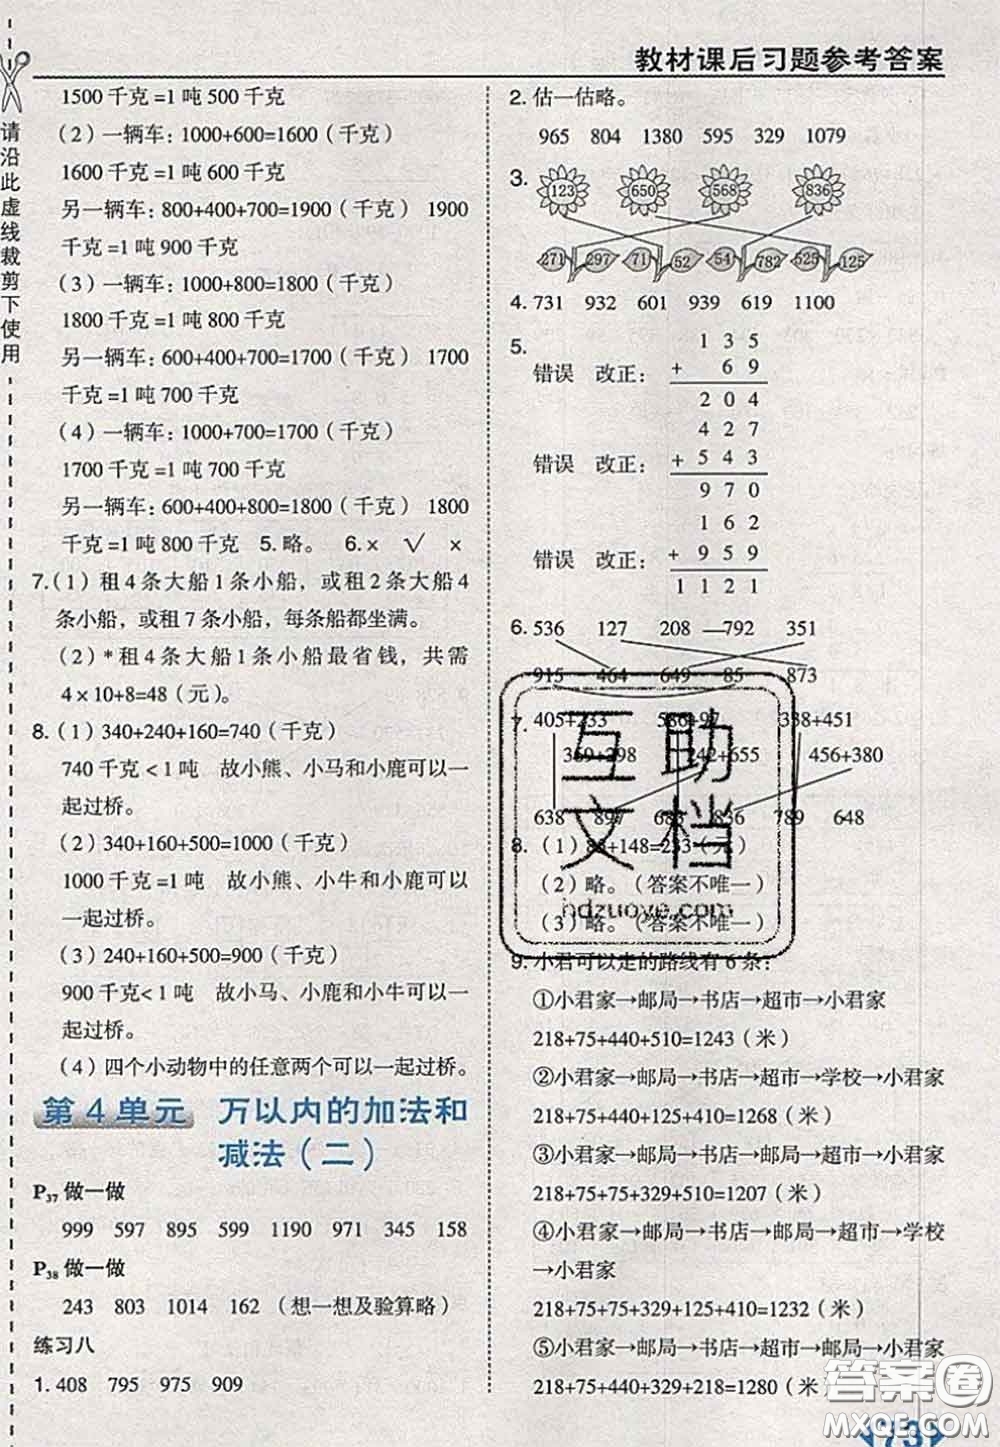 教材课后习题参考答案
请沿此虚线裁剪下使用
1500千克=1吨500千克
(2)一辆车:1000+600=1600(千克)
1600千克=1吨600千克
另一辆车:800+400+700=1900(千克) 1900
千克=1吨900千克
(3)一辆车:1000+800=1800(千克)
1800千克=1吨800千克
另一辆车:600+400+700=1700(千克) 1700
千克=1吨700千克
(4)一辆车:1000+700=1700(千克)
1700千克=1吨700千克
另一辆车:600+400+800=1800(千克) 1800
千克=1吨800千克 5.略。 6.× √ ×
7.(1)租4条大船1条小船,或租2条大船4
条小船,或租7条小船,每条船都坐满。
(2)*租4条大船1条小船最省钱,共需
4×10+8=48(元)。
8.(1)340+240+160=740(千克)
740千克<1吨 故小熊、小马和小鹿可以一
起过桥。
(2)340+160+500=1000(千克)
1000千克=1吨 故小熊、小牛和小鹿可以
一起过桥。
(3)240+160+500=900(千克)
900千克<1吨 故小马、小鹿和小牛可以一
起过桥。
(4)四个小动物中的任意两个可以一起过桥。
第4单元 万以内的加法和
减法(二)
P37做一做
999 597 895 599 1190 971 345 158
P38做一做
243 803 1014 162 (想一想及验算略)
练习八
1.408 795 975 909
2.估一估略。
965 804 1380 595 329 1079
3.
123 650 568 836
271 297 71 52 54 782 525 125
4.731 932 601 939 619 1100
5.
135
错误 改正: + 69
204
427
错误 改正: +543
970
162
错误 改正: +959
1121
6.536 127 208 792 351
915 464 649 85 873
7.
405+233 586+97 338+451
359+298 242+655 456+380
638 897 683 836 789 648
8.(1)85+148=233(元)
(2)略。(答案不唯一)
(3)略。(答案不唯一)
互助文档
hdzuoye.com
9.小君可以走的路线有6条:
①小君家→邮局→书店→超市→小君家
218+75+440+510=1243(米)
②小君家→邮局→书店→超市→学校→小君家
218+75+440+125+410=1268(米)
③小君家→邮局→书店→邮局→超市→小君家
218+75+75+329+510=1207(米)
④小君家→邮局→书店→邮局→超市→学校
→小君家
218+75+75+329+125+410=1232(米)
⑤小君家→邮局→书店→超市→邮局→小君家
218+75+440+329+218=1280(米)
答案圈
MXQE.COM